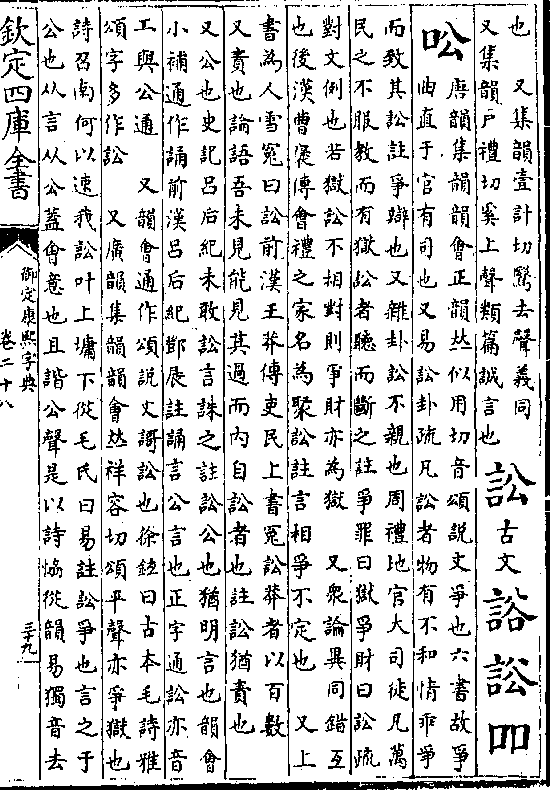 也　又集韻壹計切翳去聲義同
又集韻戸禮切奚上聲類篇誠言也　訟　古文　𧧗　訟　吅
吅　唐韻集韻韻會正韻𠀤似用切音頌說文爭也六書故爭
曲直于官有司也又易訟卦疏凡訟者物有不和情乖爭
而致其訟註爭辯也又雜卦訟不親也周禮地官大司徒凡萬
民之不服教而有獄訟者聽而斷之註爭罪曰獄爭財曰訟疏
對文例也若獄訟不相對則爭財亦為獄　又衆論異同錯互
也後漢曹褒傳會禮之家名為聚訟註言相爭不定也　又上
書為人雪寃曰訟前漢王莽傳吏民上書寃訟莽者以百數
又責也論語吾未見能見其過而內自訟者也註訟猶責也
又公也史記呂后紀未敢訟言誅之註訟公也猶明言也韻會
小補通作誦前漢呂后紀鄧展註誦言公言也正字通訟亦音
工與公通　又韻會通作頌說文謌訟也徐鉉曰古本毛詩雅
頌字多作訟　又廣韻集韻韻會𠀤祥容切頌平聲亦爭獄也
詩召南何以速我訟叶上墉下從毛氏曰易註訟爭也言之于
公也从言从公蓋會意也且諧公聲是以詩協從韻易獨音去
欽定四庫全書
御定康熙字典
卷二十八
三十九